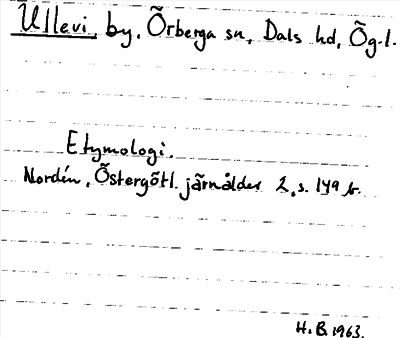 Ullevi, by, Örberga sn, Dals hd, Ög.l.
Etymologi.
Nordén, Östergötl. järnålder 2, s. 149 b.
H.B. 1963.